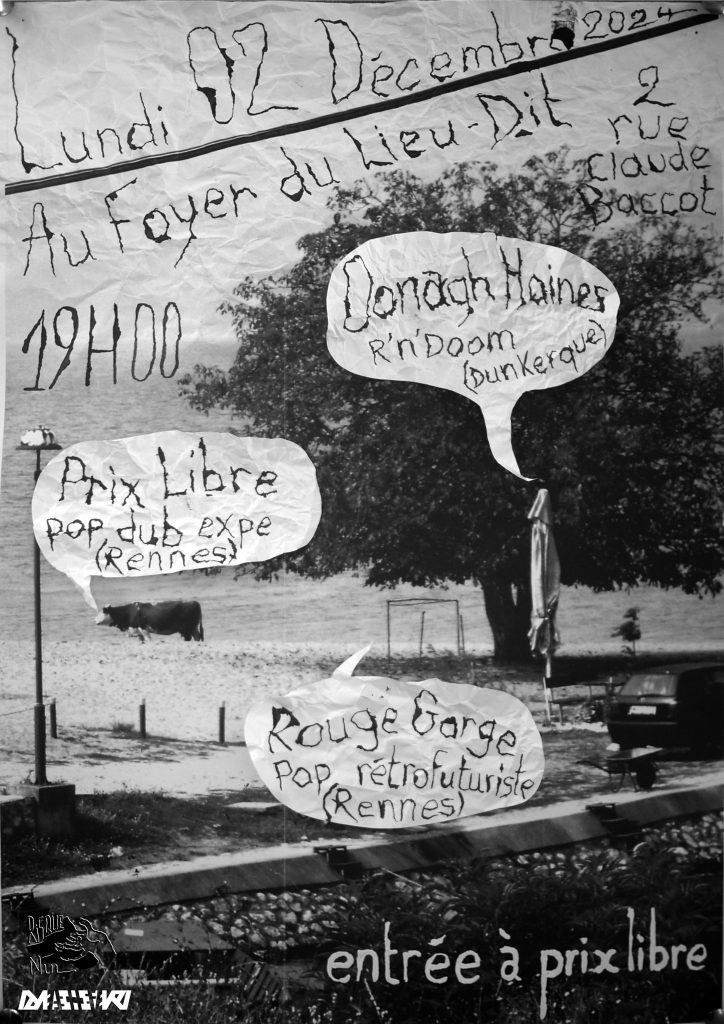 Lundi 02 Décembre 2024
Au Foyer du Lieu-Dit
2
rue
Claude
Baccot
19H00
Donagh Haines
R'n'Doom
(Dunkerque)
Prix Libre
pop dub expe
(Rennes)
Rouge Gorge
pop rétrofuturiste
(Rennes)
entrée à prix libre